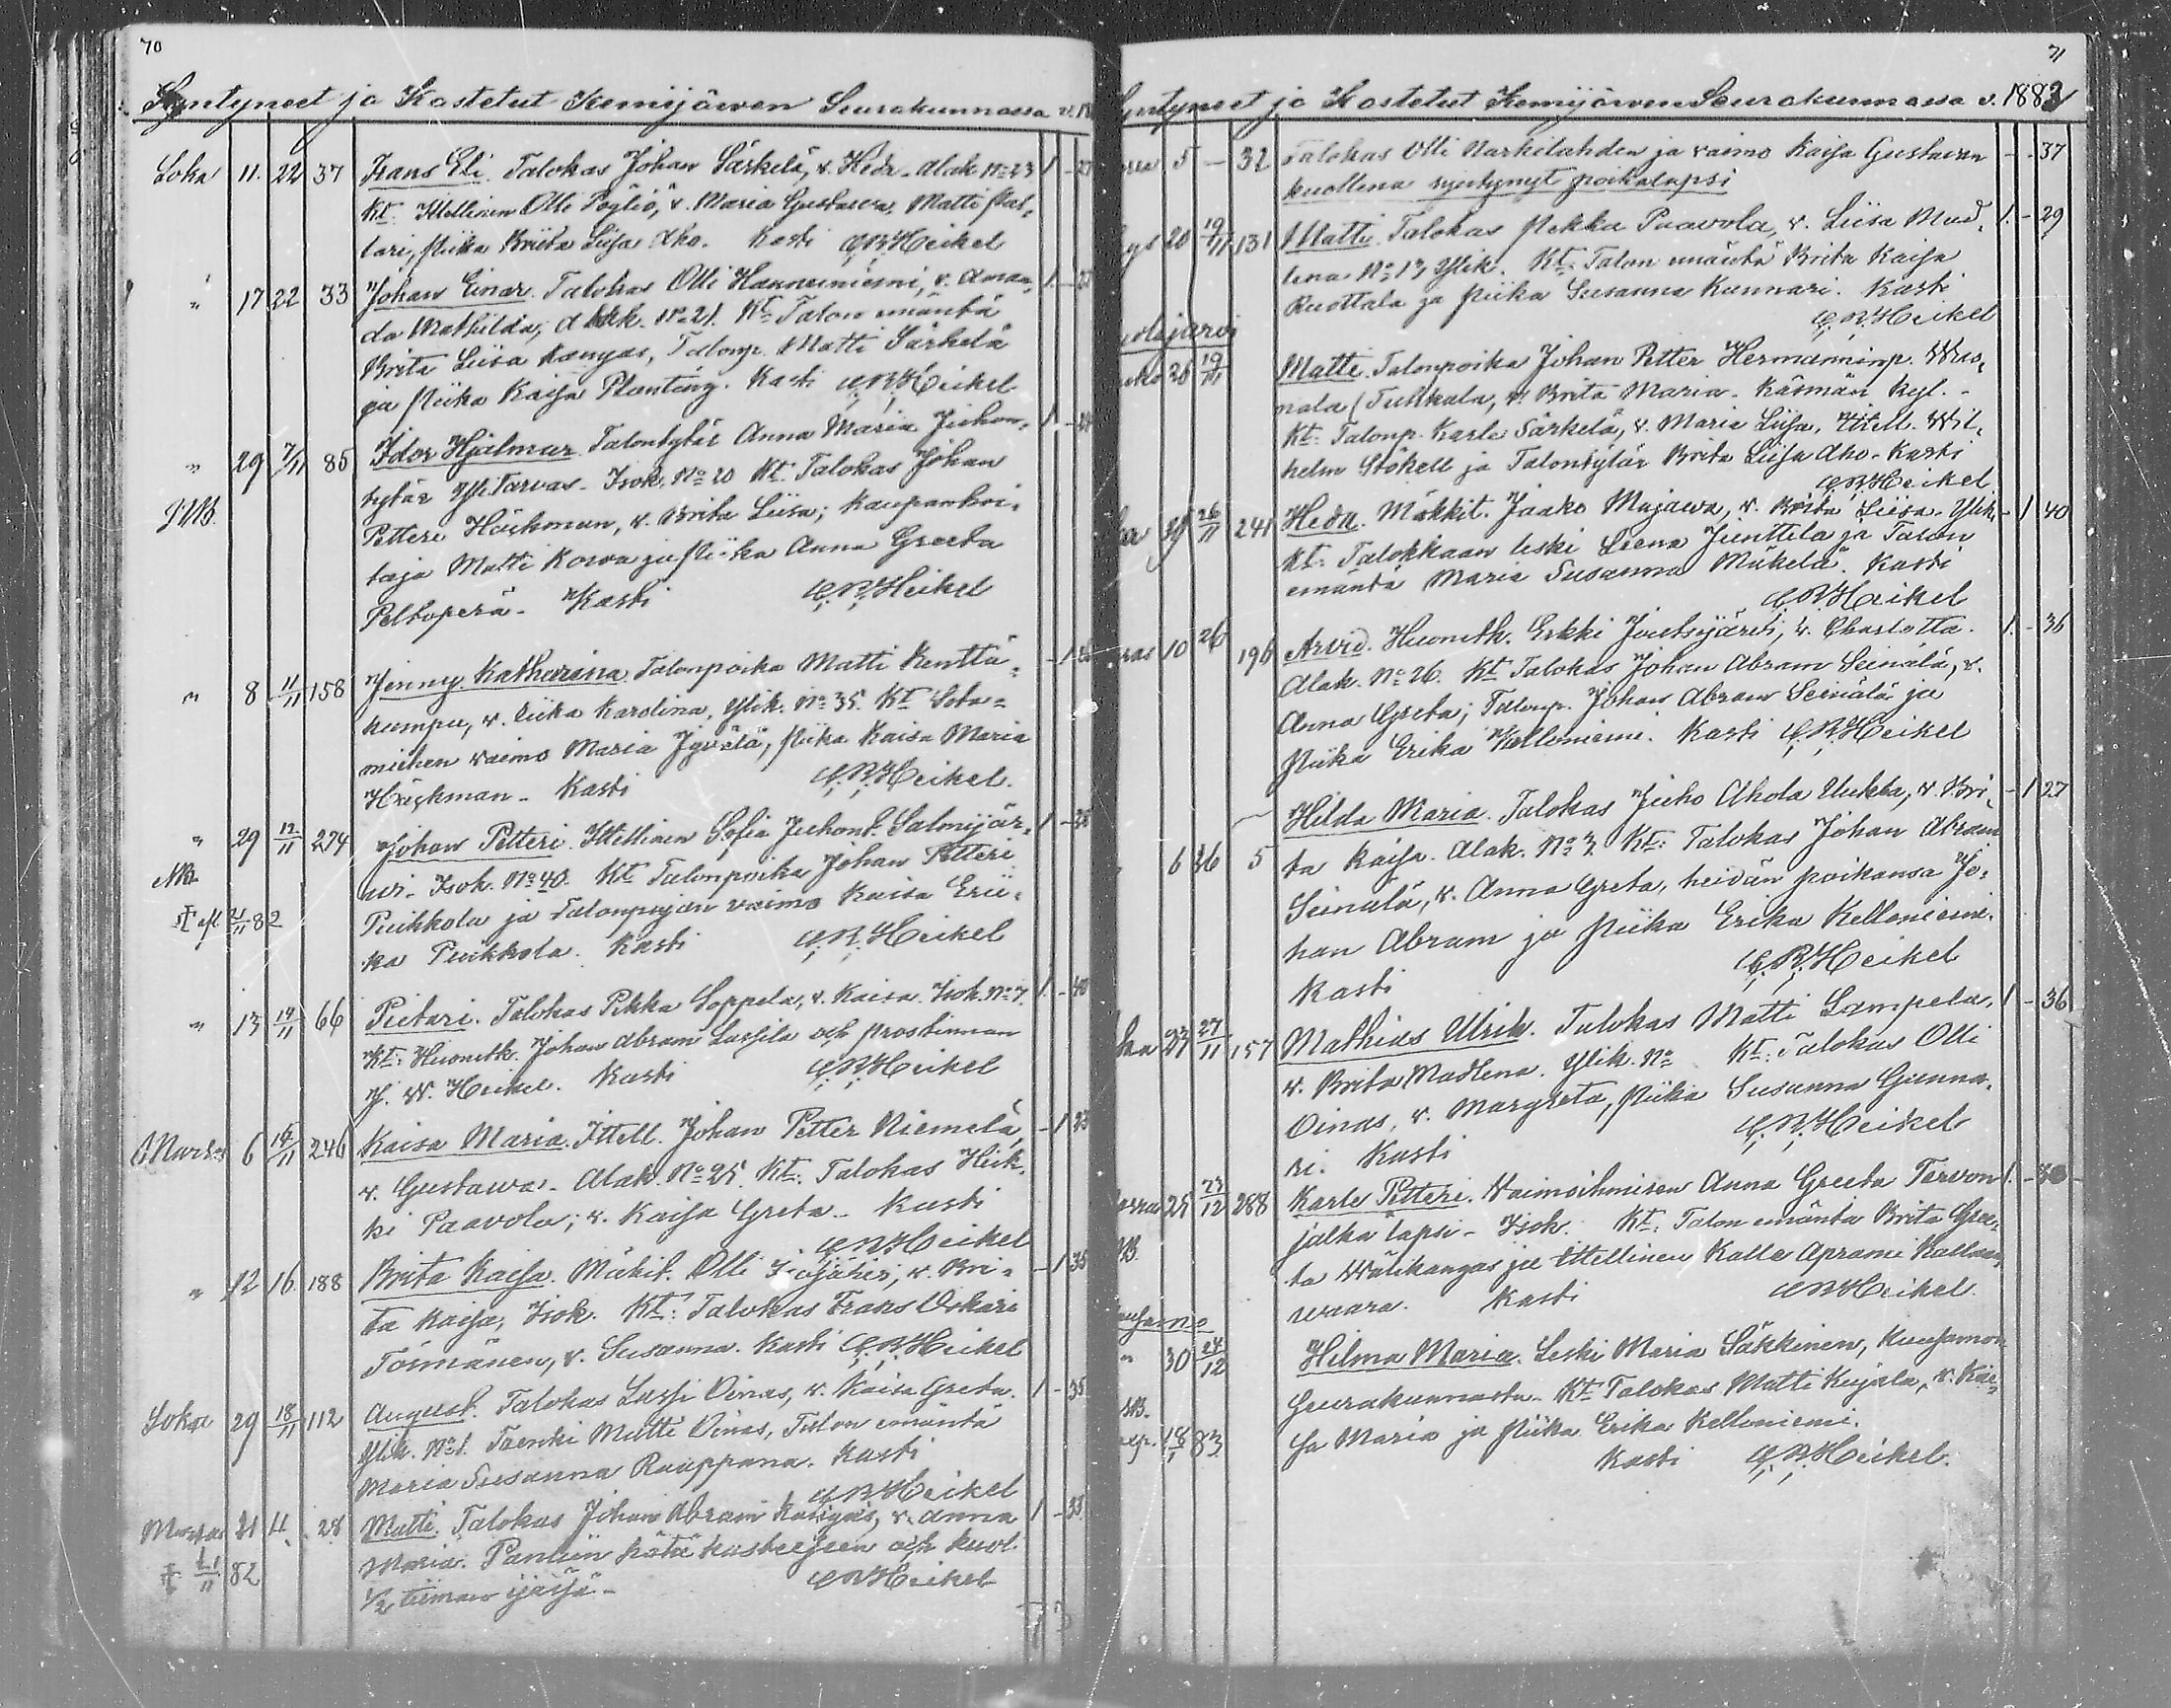 70
Syntyneet ja Kastetut Kemijärven Seurakunnassa v. 18
Loka 11. 22 37 Frans Eli. Talokas Johan Särkelä, v. Heda. Alak. No 23 1 - 27
Kt: Itellinen Olli Pöyliö, v. Maria Gustawa, Matti
tari, Piika Briita Liisa Aho. Kasti C.R. Heikel
" 17 22 33 Johan Einar. Talokas Olli Hanneniemi, v. Aman, 1 -
da Mathilda, Alak. No 21. Kt: Talon emäntä
Brita Liisa Kangas, Talonp. Matti Särkelä
ja Piika Kaisa Planting. Kasti C.R. Heikel
" 29 7/11 85 Idor Hjalmar. Talontytär Anna Maria Juhon, 1 -
NB. tytär Ylitarvas. Isok. No 20 Kt: Talokas Johan
Petteri Höckman, v. Brita Liisa; Kaupanhoi,
taja Matti Korva ja Piika Anna Greeta
Peltoperä. Kasti C.R. Heikel
" 8 11/11 158 Jenny Katharina. Talonpoika Matti Kenttä= - 1
kumpu, v. Liika Karolina, Ylik. No 35. Kt: Sota=
miehen vaimo Maria Jyvälä, Piika Kaisa Maria
Höckman. Kasti C.R. Heikel.
" 29 12/11 274 Johan Petteri. Itellinen Sofia Juhont. Salmijär, 1 -
NB. vi. Isok. No 40. Kt: Talonpoika Johan Petteri
21/11 82 Puikkola ja Talonpojan vaimo Kaisa Erii,
ka Puikkola. Kasti C.R. Heikel
" 13 14/11 66 Pietari. Talokas Pekka Soppela, v. Kaisa. Isok. No 7. 1. - 40
Kt: Huonetk. Johan Abram Lassila och Prostinnan
J. W. Heikel. Kasti C.R. Heikel
Marras 6 15/11 246 Kaisa Maria. Itell. Johan Petter Niemelä, - 1 23
v. Gustawa. Alak. No 25. Kt: Talokas Heik,
ki Paavola; v. Kaisa Greta. Kasti
C.R. Heikel
" 12 16. 188 Brita Kaisa. Mäkit. Olli v. Bri= - 1 35
ta Kaisa, Isok. Kt: Talokas Frans Oskari
Törmänen, v. Susanna. Kasti C.R. Heikel
Loka 29 18/11 112 August. Talokas Lassi Oinas, v. Kaisa Greta. 1 - 35
Ylik. No 1. Trenki Matti Oinas, Talon emäntä
Maria Susanna Ruuppana. Kasti
C.R. Heikel
Marras 21 28 Matti. Talokas Johan Abram Kangas, v. Anna 1 - 33
11 82 Maria. Pantiin hätä kasteeseen och kuol.
1/2 tiiman ijässä. C.R. Heikel
71
Syntyneet ja Kastetut Kemijärven Seurakunnassa v. 1882
5 - 32 Talokas Olli Narkilahden ja vaimo Kaisa Gustavan - - 37
kuollena syntynyt poikalapsi
20 19/11 131 Matti. Talokas Pekka Paavola, v. Liisa Mad, 1. - 29
lena No 13 Ylik. Kt: Talon emäntä Brita Kaisa
Ruottala ja Piika Susanna Kunnari. Kasti
C.R. Heikel
26 19/11 Matti. Talonpoika Johan Petter Hermanninp. Wuo,
nala (Tuhkala, v. Brita Maria. Käsmän kyl.
Kt: Talonp. Karle Särkelä, v. Maria Liisa, Itell. Wil,
helm Stökell ja Talontytär Brita Liisa Aho. Kasti
C.R. Heikel
26/11 241 Heda. Mäkkit. Jaako Majava, v. Brita Liisa. Ylik. - 1 40
Kt: Talokkaan leski Leena Junttila ja Talon
emäntä Maria Susanna Mäkelä. Kasti
C.R. Heikel
10 26 196 Arvid. Huonetk. Erkki Joutsijärvi, v. Charlotta. 1. - 36
Alak. No 26. Kt: Talokas Johan Abram Seinälä, v.
Anna Greta; Talonp. Johan Abram Seinälä ja
Piika Erika Kelloniemi. Kasti C.R. Heikel
6 26 5 Hilda Maria. Talokas Juho Ahola Uukka, v. Bri, - 1 27
ta Kaisa. Alak. No 3. Kt: Talokas Johan Abram
Seinälä, v. Anna Greta, heidän poikansa Jo,
han Abram ja Piika Erika Kelloniemi.
Kasti C.R. Heikel
27/11 157 Mathias Ulrik. Talokas Matti Lampela, 1 - 36
v. Brita Madlena. Ylik. No Kt: Talokas Olli
Oinas, v. Margreta, Piika Susanna Gunna,
ri. Kasti C.R. Heikel
25 23/12 288 Karle Petteri. Vaimoihmisen Anna Greeta Tervon 1. - 40
NB. jalka lapsi. Isok. Kt: Talon emäntä Brita Gree,
ta Wälikangas ja Itellinen Kalle Aprami Kallan,
waara. Kasti C.R. Heikel.
Kuusamo
" 30 24/12 Hilma Maria. Leski Maria Säkkinen, Kuusamon
NB. Seurakunnasta. Kt: Talokas Matti Kujala, v. Kai,
18/1 83 sa Maria ja Piika Erika Kelloniemi.
Kasti C.R. Heikel.